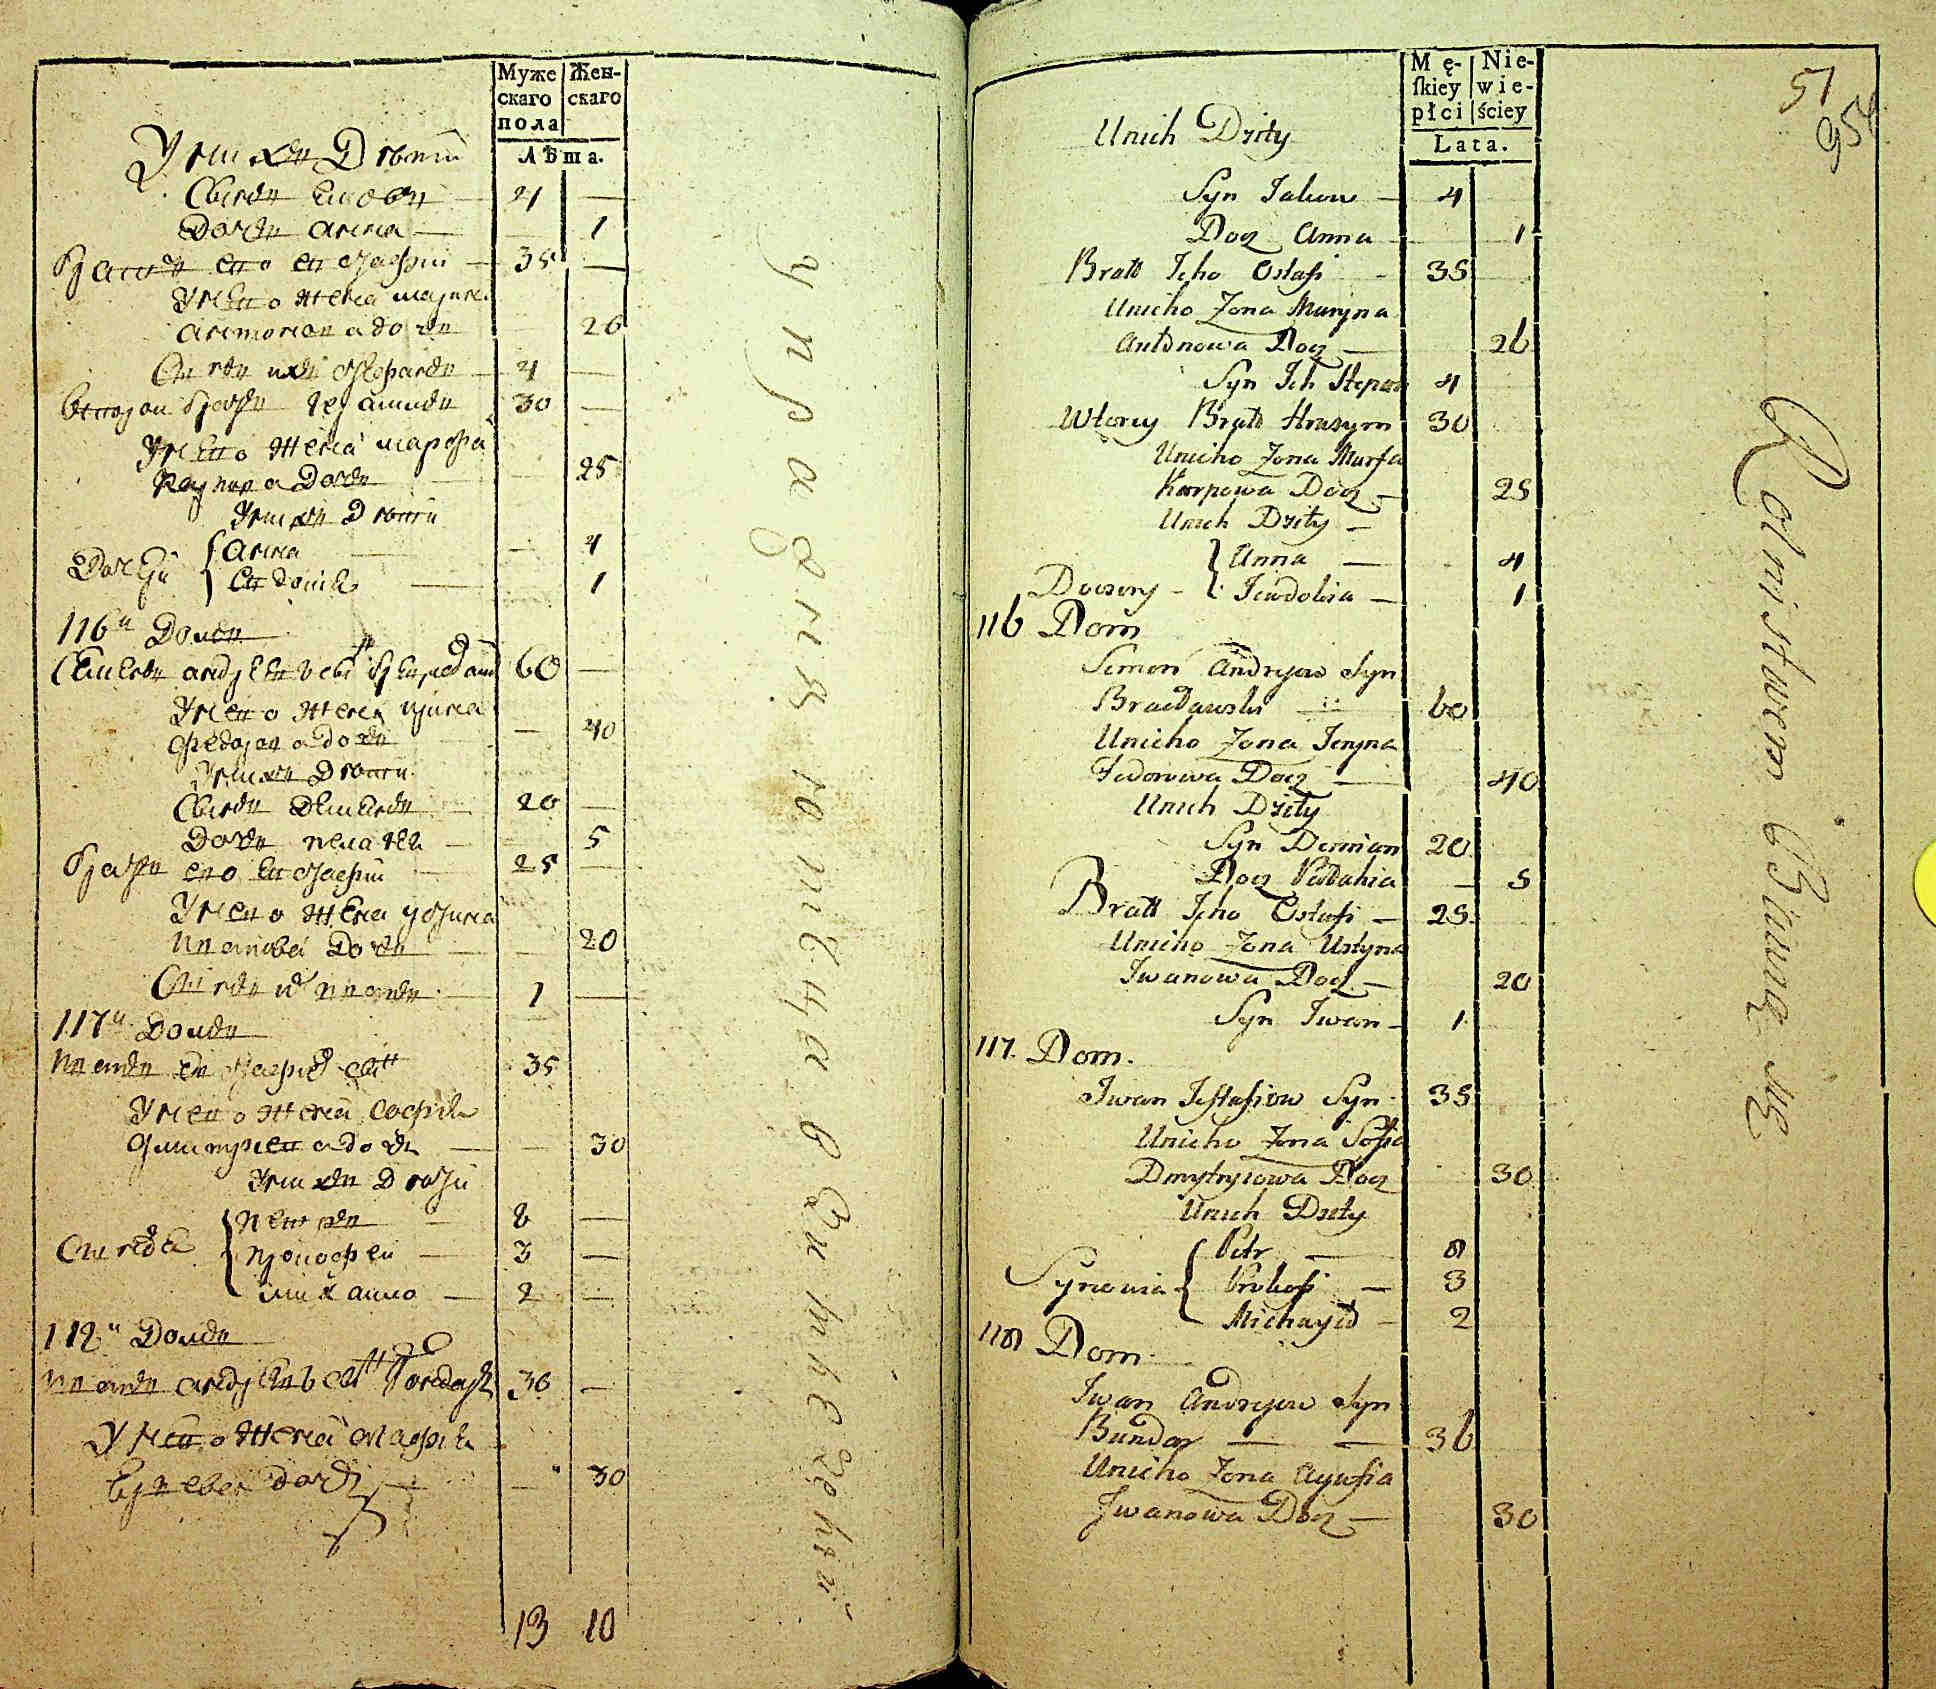 Муже
скаго
пола
Жен-
скаго
Лѣта.
У них Дѣти
Сынъ Яковъ — 4 —
Дочь Анна — 1
Братъ его Евстафій — 35 —
У него жена Марина
Антонова дочь 26
Сынъ их Степанъ — 4 —
Вторый братъ Герасимъ 30 —
У него жена Марфа
Карпова Дочь 25
У них Дѣти
Дочери { Анна — 4
Евдокія — 1
116й Домъ
Семенъ Андреевъ сынъ 60 —
У него жена Ирина
Федорова дочь — 40
У них Дѣти
Сынъ Демянъ 20 —
Дочь — 5
Братъ его Евстафій — 25 —
У него жена Устина
Иванова Дочь — 20
Сынъ Иванъ — 1 —
117й Домъ
Иванъ Евстафіевъ 35
У него жена Софія
Дмитріева дочь — 30
У них Дѣти
Сыновя { Петръ — 8 —
Прокофей — 3 —
Михайло — 2 —
118й Домъ
Иванъ Андреевъ 36 —
У него жена
дочь — 30
13 10
Mę-
ſkiey
płci
Nie-
wie-
ściey
Lata.
51
Unich Dzity
Syn Jakow — 4
Docz Anna 1
Bratt Jeho Ostafi — 35
Unieho Zona Maryna
Antonowa Docz — 26
Syn Ich Stepan 4
Wtoroy Bratt Hrasym 30
Unieho Zona Marfa
Karpowa Docz — 25
Unich Dzity —
{ Anna — 4
Doczery — Jewdokia — 1
116 Dom
Semen Andryew Syn
Bracławski — 60
Unieho Zona Jeryna
Fedorowa Docz — 40
Unich Dzity
Syn Demian 20
Docz Pałahia — 5
Bratt Jeho Ostafi — 25
Unieho Zona Ustyna
Iwanowa Docz — 20
Syn Iwan — 1
117. Dom.
Iwan Jestafiow Syn 35
Unieho Zona Sofia
Dmytryiowa Docz 30
Unich Dzity
{ Petr — 8
Synowia Prokofi — 3
Michayło — 2
118 Dom
Iwan Andryew Syn
Bundar — — 36
Unieho Zona
Iwanowa Docz — 30